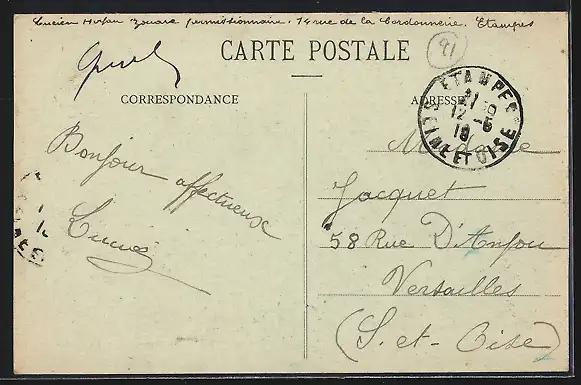 Lucien Hofan zouave permissionnaire. 14 rue de la Cordonnerie, Etampes
CARTE POSTALE
91
CORRESPONDANCE
ADRESSE
ETAMPES
21 30
12 -6
18
SEINE ET OISE
Bonjour affectueux
Lucien
Madame
Jacquet
58 Rue D'Anjou
Versailles
(S. et- Oise)